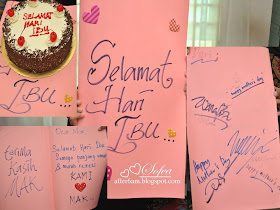 SELAMAT
HARI
IBU
IBU...
Terima
Kasih
MAK
Dear Mak,
Selamat Hari Ibu
Semoga panjang umur
& murah rezeki
KAMI
MAK...
Selamat
Hari
IBU...
Sofea
atterbam.blogspot.com
happy mothers day
happy
Mother's
Day
happy mother's